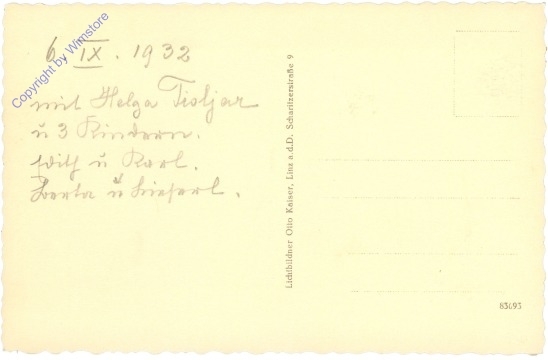 6. IX. 1932
mit Helga Tioljar
u 3 Kindern.
Edith u Karl.
Berta u Lieserl.
Lichtbildner Otto Kaiser, Linz a.d.D. Scharitzerstraße 9
83693
Copyright by Wimstore